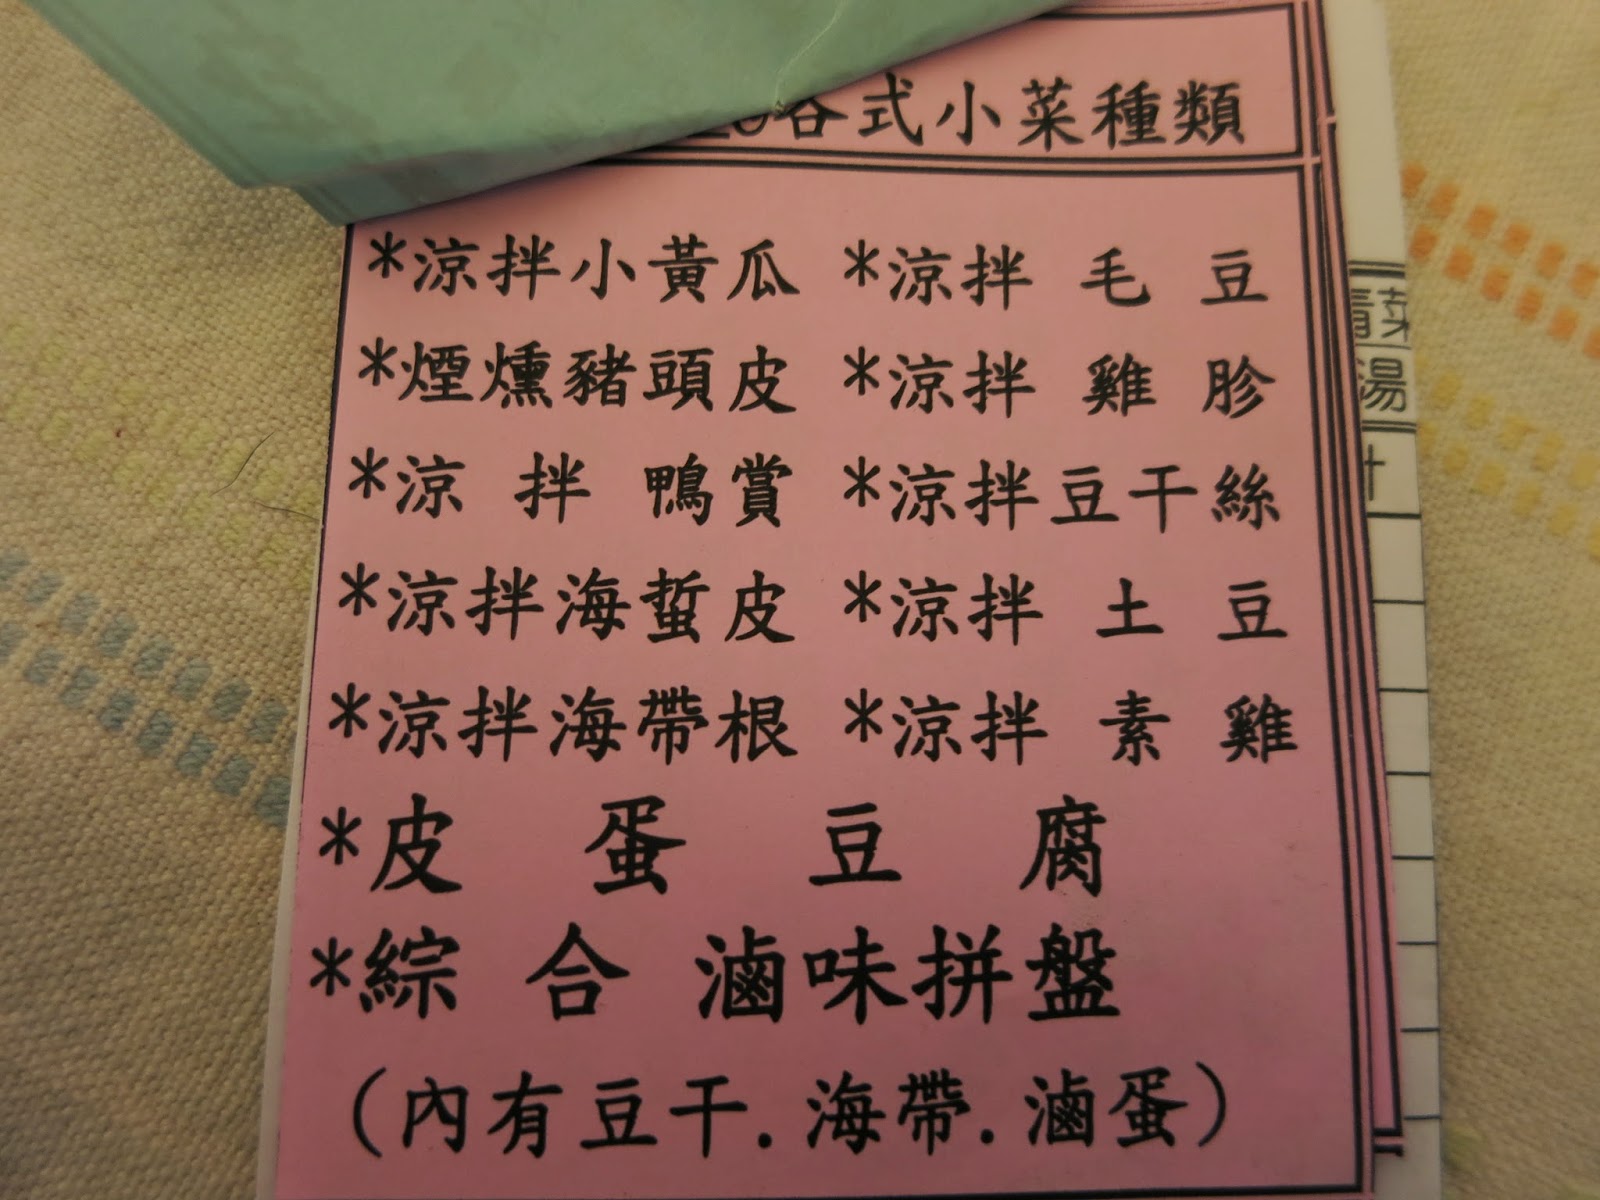 各式小菜種類
*涼拌小黃瓜 *涼拌毛豆
*煙燻豬頭皮 *涼拌雞胗
*涼拌鴨賞 *涼拌豆干絲
*涼拌海蜇皮 *涼拌土豆
*涼拌海帶根 *涼拌素雞
*皮蛋豆腐
*綜合滷味拼盤
(內有豆干.海帶.滷蛋)
青菜
湯